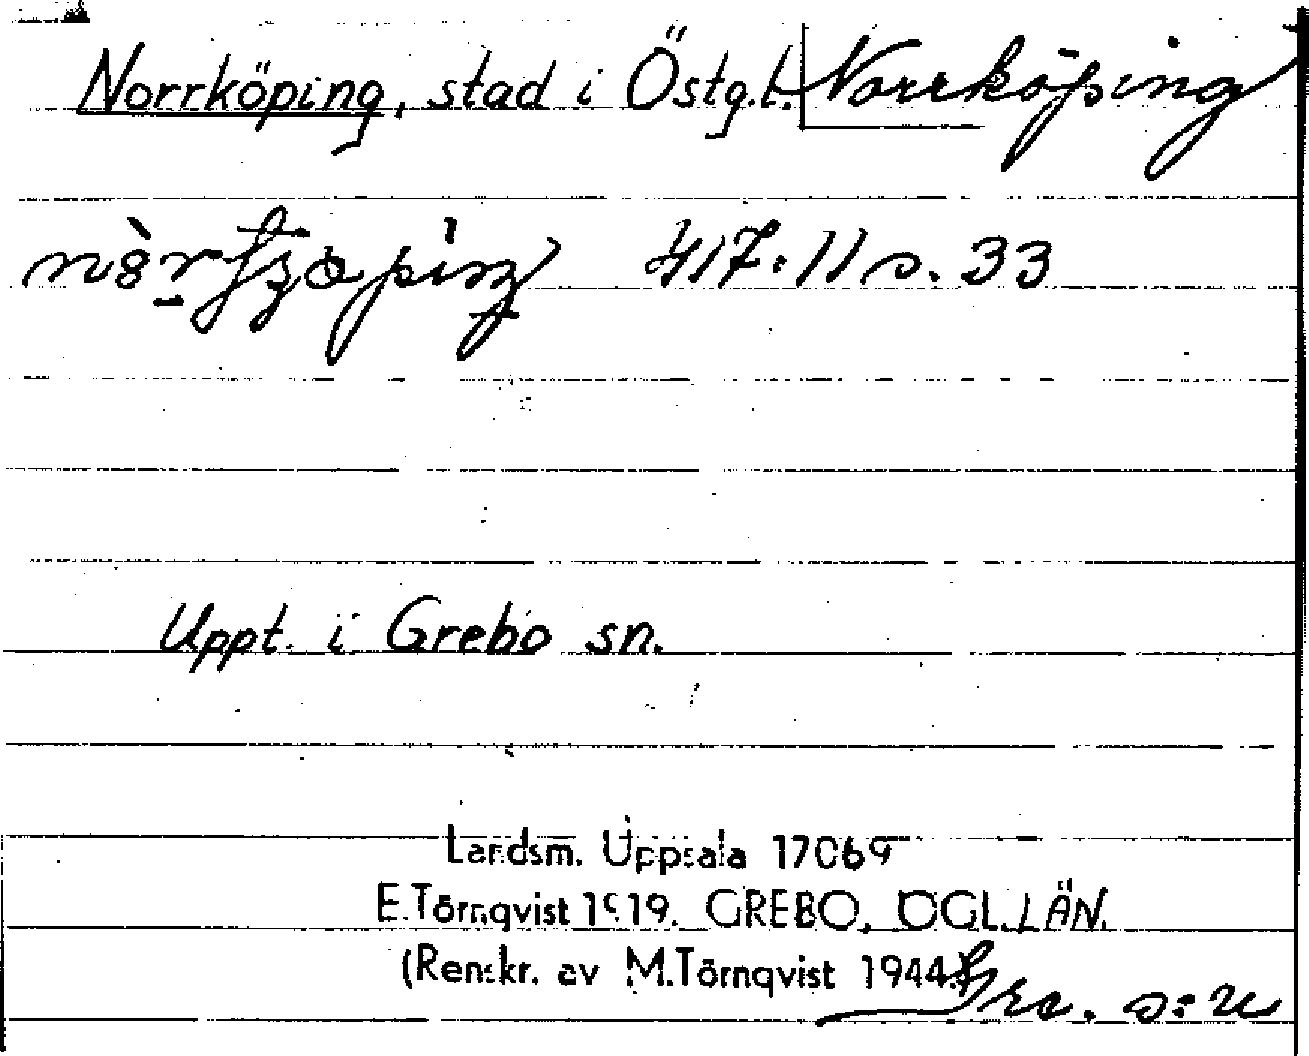 Norrköping, stad i Östg.l. Norrköping
417:11 s. 33
Uppt. i Grebo sn.
Landsm. Uppsala 17069
E.Törnqvist 1919. GREBO, ÖGL.LÄN.
(Renskr. av M.Törnqvist 1944.)